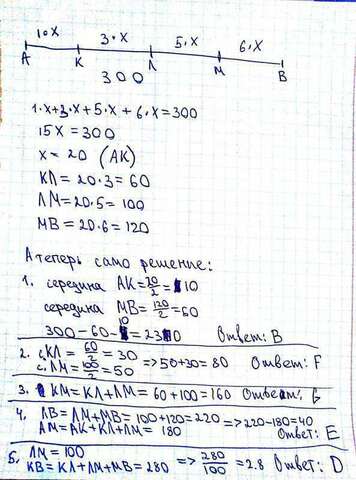 1·x 3·x 5·x 6·x
А К Л М В
300
1·x+3·x+5·x+6·x=300
15x=300
x=20 (АК)
КЛ=20·3=60
ЛМ=20·5=100
МВ=20·6=120
А теперь само решение:
1. середина АК=20/2=10
середина МВ=120/2=60
300-60-10=230 Ответ: В
2. с.КЛ=60/2=30
с.ЛМ=100/2=50 =>50+30=80 Ответ: F
3. КМ=КЛ+ЛМ=60+100=160 Ответ: G
4. ЛВ=ЛМ+МВ=100+120=220 =>220-180=40
АМ=АК+КЛ+ЛМ=180 Ответ: E
5. ЛМ=100
КВ=КЛ+ЛМ+МВ=280 => 280/100=2.8 Ответ: D